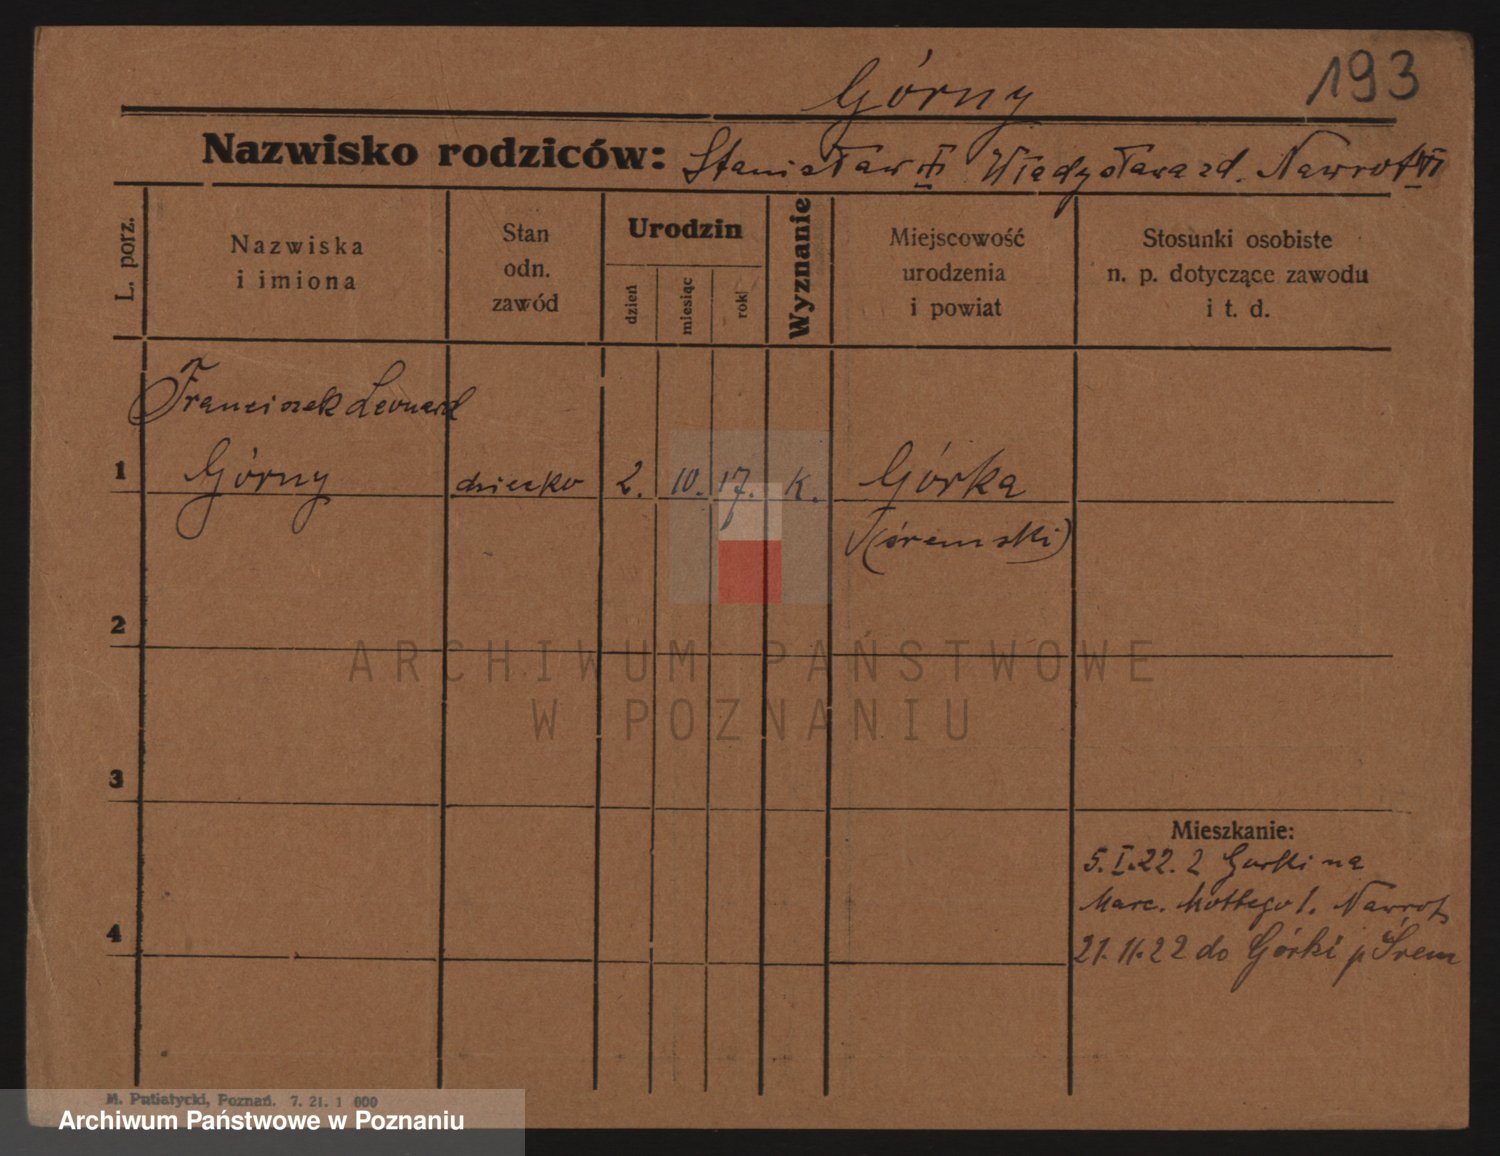 Górny 193
Nazwisko rodziców: Stanisław Władysława zd. Nawrot
L. porz.
Nazwiska
i imiona
Stan
odn.
zawód
Urodzin
dzień
miesiąc
rok
Wyznanie
Miejscowość
urodzenia
i powiat
Stosunki osobiste
n. p. dotyczące zawodu
i t. d.
Franciszek Leonard
1 Górny dziecko 2. 10. 17. k. Górka
(śremski)
2
3
4
Mieszkanie:
5. I. 22. z Gorki na
Marc. Mottego 1. Nawrot
21. 11. 22 do Górki p Śrem
M. Putiatycki, Poznań. 7. 21. 1 000
ARCHIWUM PAŃSTWOWE
W POZNANIU
Archiwum Państwowe w Poznaniu